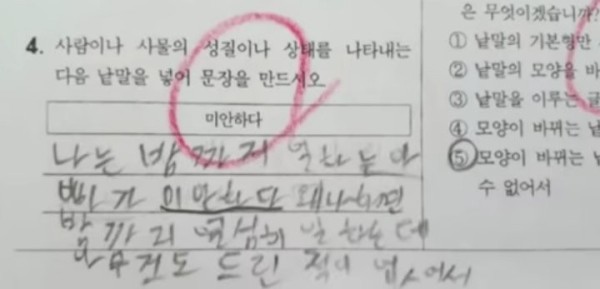 4. 사람이나 사물의 성질이나 상태를 나타내는
다음 낱말을 넣어 문장을 만드시오
미안하다
나는 밤까지 일하는 아
빠가 미안하다 왜냐하면
밤까지 열심히 일하는데
아무것도 드린 적이 없어서
은 무엇이겠습니까?
① 낱말의 기본형만
② 낱말의 모양을 바
③ 낱말을 이루는 글
④ 모양이 바뀌는 낱
⑤ 모양이 바뀌는 낱
수 없어서